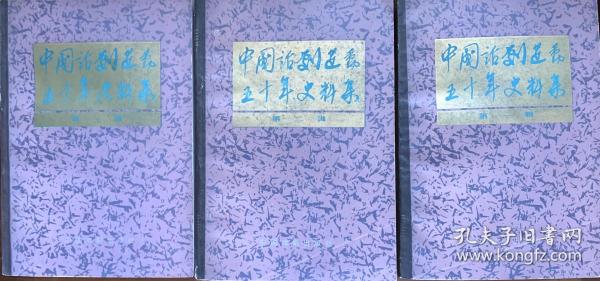 中国话剧运动
五十年史料集
第 辑
中国话剧运动
五十年史料集
第 辑
中国话剧运动
五十年史料集
第 辑
孔夫子旧书网
www.kongfz.com